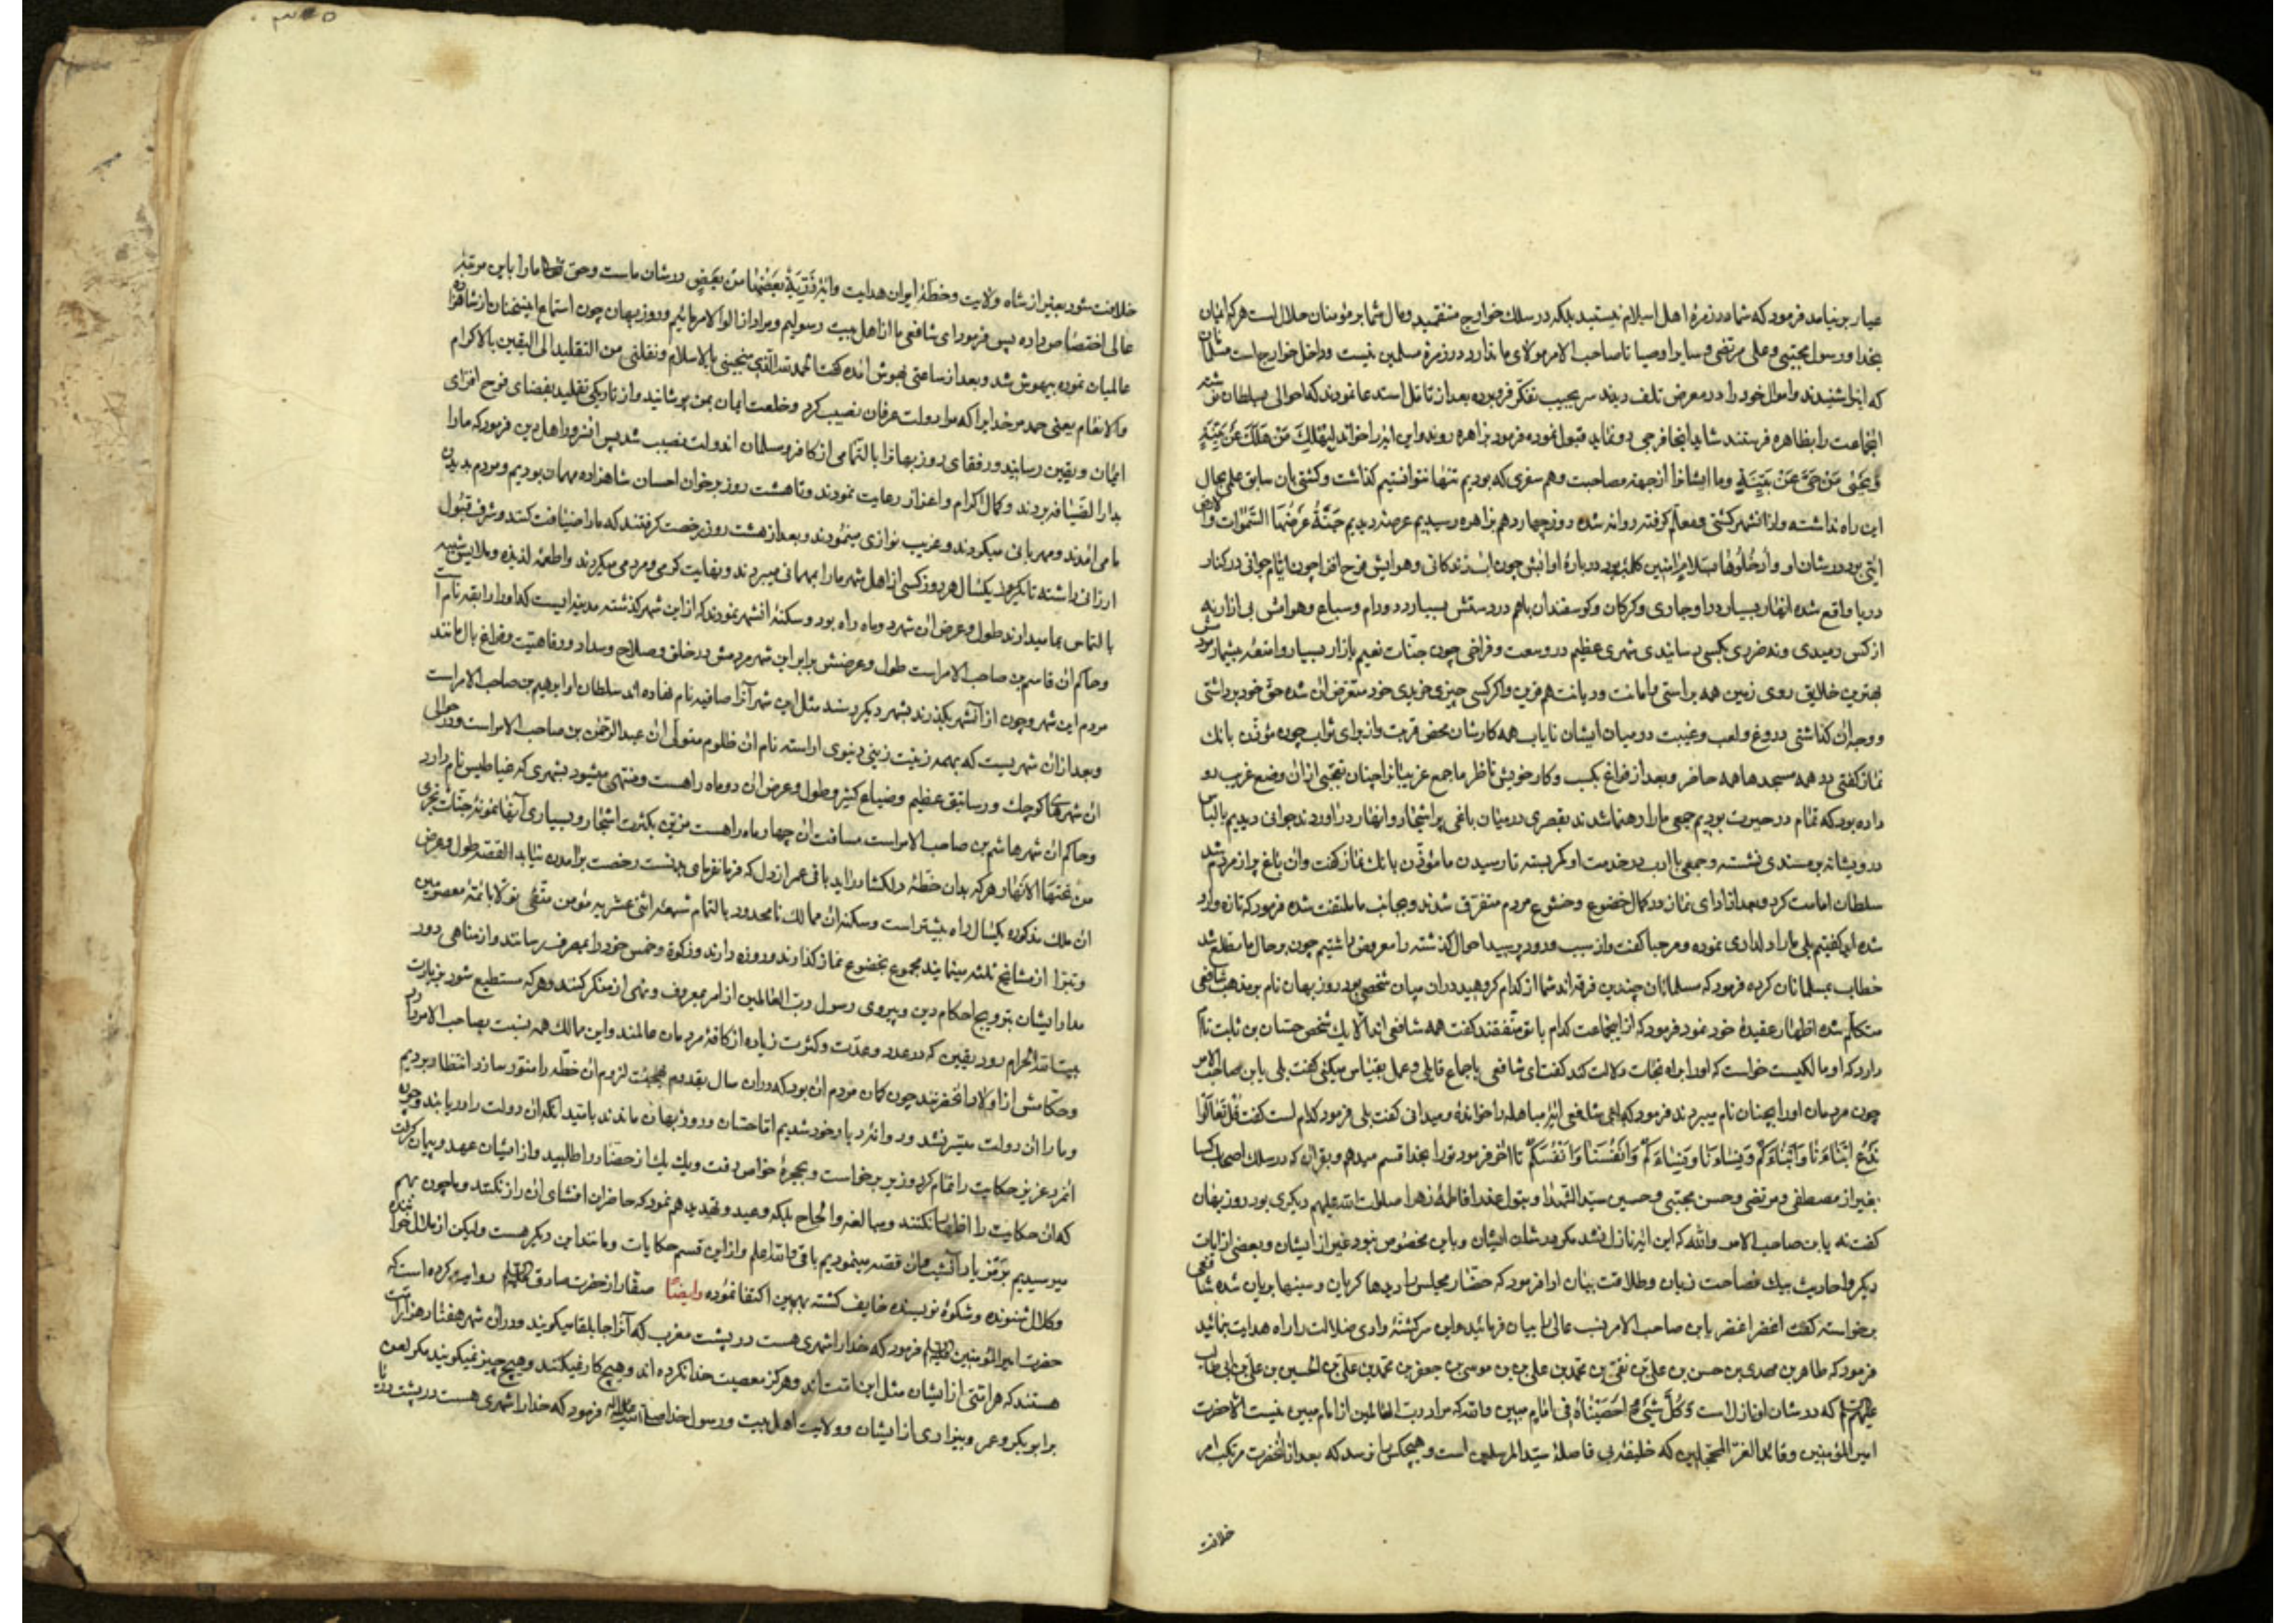 عیار برنیامد فرمود که شما در زمرهٔ اهل اسلام نیستید بلکه در سلک خوارج منتظمید و مال شما بر مؤمنان حلال است هر که ایمان
بخدا و رسول مجتبی و علی مرتضی و سایر اوصیا تا صاحب الامر مولای ما ندارد در زمرهٔ مسلمین نیست و داخل خوارج است مسلمانان
که این شنیدند و اموال خود را در معرض تلف دیدند سر بجیب تفکر فرو برده بعد از تامل استدعا نمودند که احوالی بسلطان نوشته
انجماعت را بظاهره فرستند شاید آنجا فرجی رو نماید قبول نموده فرمود بزاهره روند و این ایه را خواند لِیَهْلِکَ مَنْ هَلَکَ عَنْ بَیِّنَةٍ
وَیَحْیٰی مَنْ حَیَّ عَنْ بَیِّنَةٍ و ما ایشانرا از جهة مصاحبت و هم سفری که بودیم تنها نتوانستیم گذاشت و کشتی بان سابق علمی بحال
این راه نداشته و از انشهر کشتی و معلم گرفته روانه شده روز چهاردهم بزاهره رسیدیم عرصهٔ دیدیم جَنَّةٌ عَرْضُهَا السَّمٰوَات وَالارض
ایتی بود در شان او و اُدْخُلُوهَا بِسَلامٍ اٰمِنین کلمهٔ بود دربارهٔ او ابش چون اب زندگانی و هوایش فرح افزا چون ایام جوانی در کنار
دریا واقع شده انهار بسیار در او جاری و گرگان و گوسفندان باهم در دستش بسیار دد و دام و سباع و هوامش بی ازار نه
از کس رمیدی و نه ضرری بکسی رسانیدی شهری عظیم در وسعت و فراخی چون جنات نعیم بازار بسیار و امتعهٔ بیشمار
بهترین خلایق روی زمین همه براستی و امانت و دیانت هم قرین و اگر کسی چیزی خریدی خود متعرض ان شده حق خود برداشتی
و وجه ان گذاشتی دروغ و لعب و غیبت در میان ایشان نایاب همه کارشان محض قربت و از برای ثواب چون مؤذن بانک
نماز گفتی در همه مسجدها همه حاضر و بعد از فراغ بکسب و کار خویش ناظر ما جمع غریبانرا چنان تعجبی از ان وضع غریب رو
داده بود که تمام در حیرت بودیم جمعی ما را رهنما شدند بقصری در میان باغی پر اشجار و انهار در اوردند جوانی دیدیم بالباس
درویشانه بر مسندی نشسته و جمعی باادب در خدمت او کمر بسته تا رسیدن ما مؤذن بانک نماز گفت و ان باغ پر از مردم شد
سلطان امامت کرد و بعد از ادای نماز در کمال خضوع و خشوع مردم متفرق شدند و بجانب ما ملتفت شده فرمود که تازه وارد
شده اید گفتیم بلی ما را دلداری نموده و مرحبا گفت و از سبب ورود پرسید احوال گذشته را معروض داشتیم چون بر حال ما مطلع شد
خطاب بمسلمانان کرده فرمود که مسلمانان چندین فرقه اند شما از کدام گروهید در ان میان شخصی بود روزبهان نام بر مذهب شافعی
متکلم شده اظهار عقیدهٔ خود نمود فرمود که از انجماعت کدام با تو متفقند گفت همه شافعی اند الا یک شخص حسان بن ثابت نام
دارد که او مالکیست خواست که اورا براه نجات دلالت کند گفت ای شافعی باجماع قایلی و عمل بقیاس میکنی گفت بلی یابن صاحب الامر
چون مردمان اورا بچنان نام میبردند فرمود که ای شافعی ایهٔ مباهله را خواندهٔ و میدانی گفت بلی فرمود کدام است گفت قُلْ تَعَالَوْا
نَدْعُ اَبْنَاءَنَا وَاَبْنَاءَکُمْ وَنِسَاءَنَا وَنِسَاءَکُمْ وَاَنْفُسَنَا وَاَنْفُسَکُمْ تا اخر فرمود تورا بخدا قسم میدهم و بقران که در سلک اصحاب کسا
بغیر از مصطفی و مرتضی و حسن مجتبی و حسین سید الشهدا و بتول عذرا فاطمهٔ زهرا صلوات الله علیهم دیگری بود روزبهان
گفت نه یابن صاحب الامر والله که این ایه نازل نشد مگر در شان ایشان و باین مخصوص نبود غیر از ایشان و بعضی از ایات
دیگر و احادیث بیک فصاحت زبان و طلاقت بیان ادا فرمود که حضار مجلس را دیدها گریان و سینها بریان شده شافعی
برخواسته گفت اغفر اغفر یابن صاحب الامر نسب عالی را بیان فرمائید و این سرگشتهٔ وادی ضلالت را راه هدایت بنمائید
فرمود که طاهر بن مهدی بن حسن بن علی بن نقی بن محمد بن علی بن موسی بن جعفر بن محمد بن علی بن الحسین بن علی بن ابی طالب
علیهم السلم که در شان او نازل است وَکُلَّ شَیْءٍ اَحْصَیْنَاهُ فِی اِمَامٍ مُبِین والله که مراد رب العالمین از امام مبین نیست الا حضرت
امیر المؤمنین و قائد الغر المحجلین که خلیفهٔ بی فاصلهٔ سید المرسلین است و هیچکس را نرسد که بعد از انحضرت مرتکب امر
خلافت
خلافت شود بغیر از شاه ولایت و خطهٔ ایران هدایت و ایهٔ ذُرِّیَّةً بَعْضُهَا مِنْ بَعْضٍ در شان ماست و حق تعالی ما را باین مرتبهٔ
عالی اختصاص داده پس فرمود ای شافعی ما از اهل بیت رسولیم و مراد از الوا الامر مائیم و روزبهان چون استماع این سخنان از شاهزاده
عالمیان نموده بیهوش شد و بعد از ساعتی بهوش آمده گفت الحمد لله الذی منحنی بالاسلام ونقلنی من التقلید الی الیقین بالاکرام
والانعام یعنی حمد مر خدایرا که مرا دولت عرفان نصیب کرد و خلعت ایمان بمن پوشانید و از تاریکی تقلید بفضای فرح افزای
ایمان و یقین رسانید و رفقای روزبهانرا بالتمامی از کافر و مسلمان اندولت نصیب شد پس انسرور اهل دین فرمود که ما را
بدار الضیافه بردند و کمال اکرام و اعزاز رعایت نمودند و تا هشت روز بر خوان احسان شاهزاده مهمان بودیم و مردم بدیدن
ما می امدند و مهربانی میکردند و غریب نوازی مینمودند و بعد از هشت روز رخصت گرفتند که ما را ضیافت کنند و شرف قبول
ارزانی داشته تا یکسال هر روز کسی از اهل شهر ما را بمهمانی میبردند و بغایت گرمی و مردمی میکردند و اطعمهٔ لذیذه و ملابس شهیه
بالتماس بما میدادند طول و عرض ان شهر دو ماه راه بود و سکنهٔ انشهر نمودند که از این شهر گذشته مدینه ایست که اورا رایقه نام است
و حاکم ان قاسم بن صاحب الامر است طول و عرضش برابر این شهر مردمش در خلق و صلاح و سداد و رفاهیت و فراغ بال مانند
مردم این شهر و چون از آنشهر بگذرند بشهر دیگر رسند مثل این شهر آنرا صافیه نام نهاده اند سلطان او ابرهیم بن صاحب الامر است
و بعد از ان شهریست که بهمه زینت زینی دنیوی اراسته نام ان ظلوم متولی ان عبد الرحمٰن بن صاحب الامر است و در حوالی
ان شهرهای کوچک و رساتیق عظیم و ضیاع کثیر و طول و عرض ان دو ماه راهست و منتهی میشود بشهری که عناطیس نام دارد
و حاکم ان شهر هاشم بن صاحب الامر است مسافت ان چهار ماه راهست مزین بکثرت اشجار و بسیاری آنها نمونهٔ جنات تجری
من تحتها الانهار هر که بدان خطهٔ دلکشا در اید باقی عمر از دل که فرمانفرمای بدنست رخصت برامدن نیابد القصه طول و عرض
ان ملک مذکوره یکسال راه بیشتر است و سکنه ان ممالک نامحدود بالتمام شیعهٔ اثنی عشریه مؤمن متقی تولا بائمهٔ معصومین
و تبرا از مشایخ ثلثه مینمایند مجموع بخضوع نماز گذارند و روزه دارند و زکوة و خمس خود را بمصرف رسانند و از مناهی دور
مدار ایشان بترویج احکام دین و پیروی رسول رب العالمین از امر بمعروف و نهی از منکر کنند و هر که مستطیع شود بزیارت
بیت الله الحرام رود یقین که در عدد و عدت و کثرت زیاده از کافهٔ مردمان عالمند و این ممالک همه نسبت بصاحب الامر دارد
و حکامش از اولاد انحضرتند چون گمان مردم ان بود که در ان سال بقدوم لزوم ان خطه را منور سازد انتظار بردیم
و ما را ان دولت میسر نشد و روانهٔ دیار خود شدیم اما حسان و روزبهان ماندند بامید انکه ان دولت را دریابند و چون
انمرد عزیز حکایت را تمام کرد وزیر برخواست و بحجرهٔ خواص رفت و یک یک از حضار را طلبید و از ایشان عهد و پیمان گرفت
که ان حکایت را اظهار نکنند و مبالغه و الحاح بلکه وعید و تهدید هم نمود که حاضران افشای ان راز نکنند و ما چون بهم
میرسیدیم برمز یاد آنشب و ان قصه مینمودیم باقی والله اعلم و از این قسم حکایات و مانند این دیگر هست ولیکن از ملال خواننده
و کلال شنونده و شکوهٔ نویسنده خایف گشته بهمین اکتفا نموده وایضًا صفار از حضرت صادق علیه السلم روایت کرده است که
حضرت امیر المؤمنین علیه السلم فرمود که خدا را شهری هست در پشت مغرب که آنرا جابلقا میگویند و در ان شهر هفتاد هزار امت
هستند که هر امتی از ایشان مثل این امت اند و هرگز معصیت خدا نکرده اند و هیچ کار نمیکنند و هیچ چیز نمیگویند مگر لعن
بر ابوبکر و عمر و بیزاری از ایشان و ولایت اهل بیت و رسول خدا صلی الله علیه واله فرمود که خدا را شهری هست در پشت